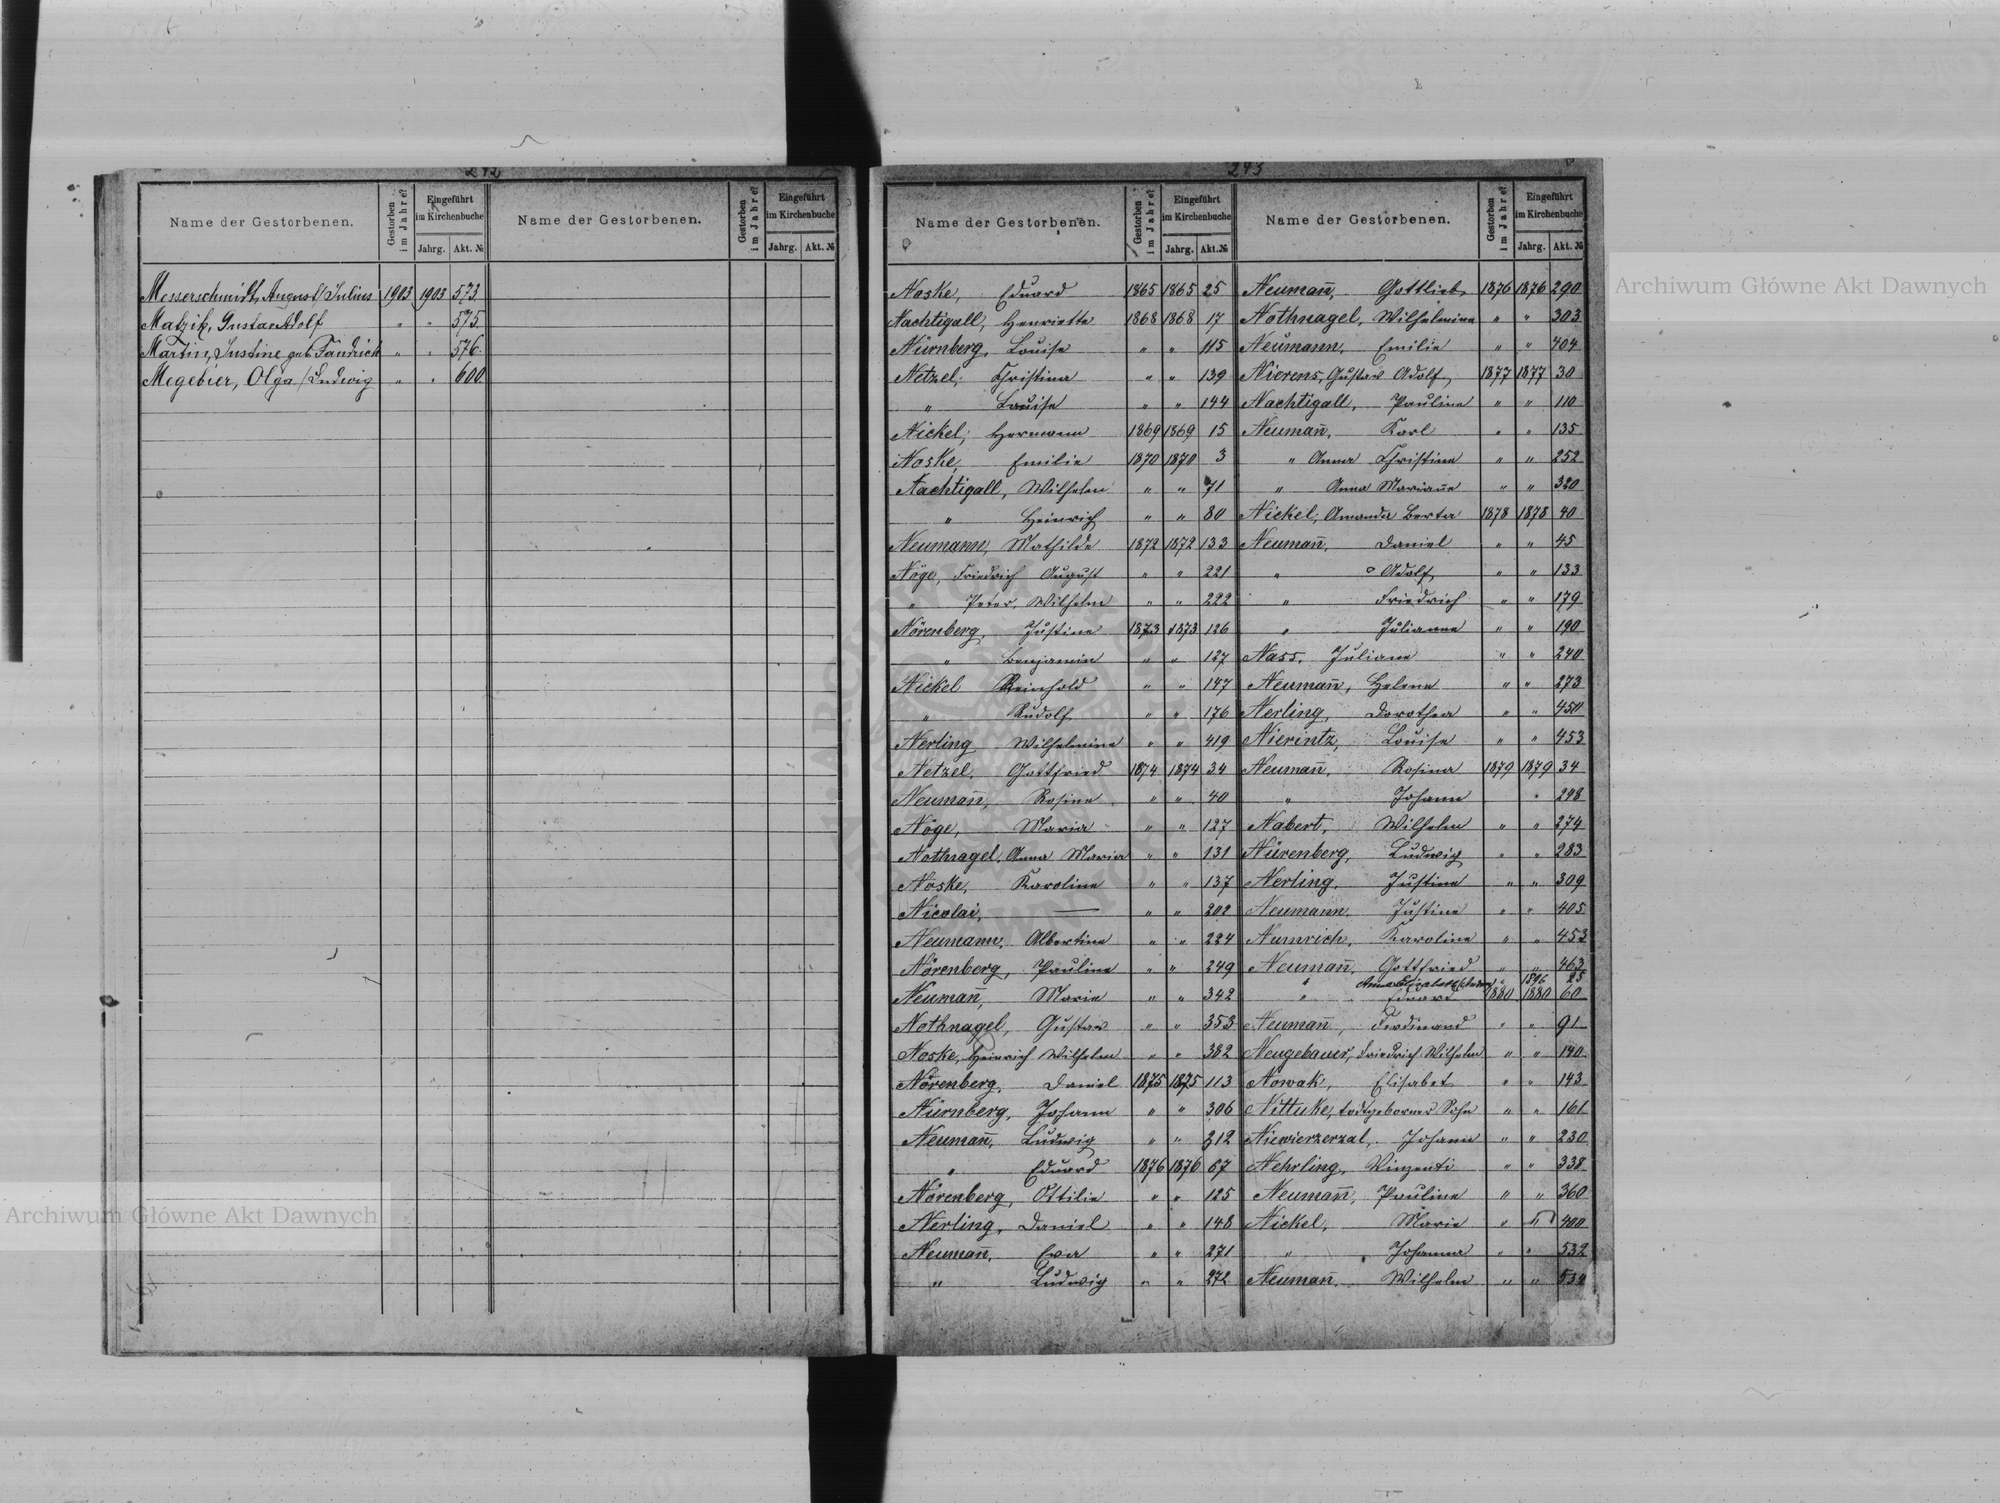 242
Name der Gestorbenen.
Gestorben im Jahre?
Eingeführt im Kirchenbuche
Jahrg. Akt. №
Name der Gestorbenen.
Gestorben im Jahre?
Eingeführt im Kirchenbuche
Jahrg. Akt. №
Messerschmidt, August/Julius 1903 1903 573.
Matzik, Gustav Adolf " " 575.
Martin, Justine geb. Fandrich " " 576.
Megebier, Olga/Ludwig " " 600
243
Name der Gestorbenen.
Gestorben im Jahre?
Eingeführt im Kirchenbuche
Jahrg. Akt. №
Name der Gestorbenen.
Gestorben im Jahre?
Eingeführt im Kirchenbuche
Jahrg. Akt. №
Noske, Eduard 1865 1865 25
Nachtigall, Henriette 1868 1868 17
Nürnberg, Louise " " 115
Netzel, Christina " " 139
" Louise " " 144
Nickel, Hermann 1869 1869 15
Noske, Emilie 1870 1870 3
Nachtigall, Wilhelm " " 71
" Heinrich " " 80
Neumann, Mathilde 1872 1872 133
Nöge, Friedrich August " " 221
" Peter Wilhelm " " 222
Nörenberg, Justine 1873 1873 126
" Benjamin " " 127
Nickel Reinhold " " 147
" Rudolf " " 176
Nerling Wilhelmine " " 419
Netzel, Gottfried 1874 1874 34
Neumañ, Rosine " " 40
Nöge, Maria " " 127
Nothnagel, Anna Maria " " 131
Noske, Karoline " " 137
Nicolai, — " " 202
Neumann, Albertine " " 224
Nörenberg, Pauline " " 249
Neumañ, Marie " " 342
Nothnagel, Gustav " " 353
Noske, Heinrich Wilhelm " " 382
Nörenberg, Daniel 1875 1875 113
Nürnberg, Johann " " 306
Neumañ, Ludwig " " 312
" Eduard 1876 1876 67
Nörenberg, Ottilie " " 125
Nerling, Daniel " " 148
Neumañ, Eva " " 271
" Ludwig " " 272
Neumañ, Gottlieb 1876 1876 290
Nothnagel, Wilhelmine " " 303
Neumann, Emilie " " 404
Nierens, Gustav Adolf 1877 1877 30
Nachtigall, Pauline " " 110
Neumañ, Karl " " 135
" Anna Christine " " 252
" Anna Mariañe " " 320
Nickel, Amanda Berta 1878 1878 40
Neumañ, Daniel " " 45
" Adolf " " 133
" Friedrich " " 179
" Julianne " " 190
Nass, Juliane " " 240
Neumañ, Helene " " 273
Nerling, Dorothea " " 450
Nierintz, Louise " " 453
Neumañ, Rosina 1879 1879 34
" Johann " 248
Nabert, Wilhelm " " 274
Nürenberg, Ludwig " " 283
Nerling, Justine " " 309
Neumann, Justine " " 405
Numrich, Karoline " " 453
Neumañ, Gottfried " " 463
" Anna Elisabeth " 1896 25
" Eduard 1880 1880 60
Neumañ, Ferdinand " " 91
Neugebauer, Friedrich Wilhelm " " 140
Nowak, Elisabet " " 143
Nittuke, todtgeborner Sohn " " 161
Niewierzerzal, Johann " " 230
Nehrling, Vinzenti " " 338
Neumañ, Pauline " " 360
Nickel, Marie " " 400
" Johanna " " 532
Neumañ, Wilhelm " " 534
Archiwum Główne Akt Dawnych
Archiwum Główne Akt Dawnych